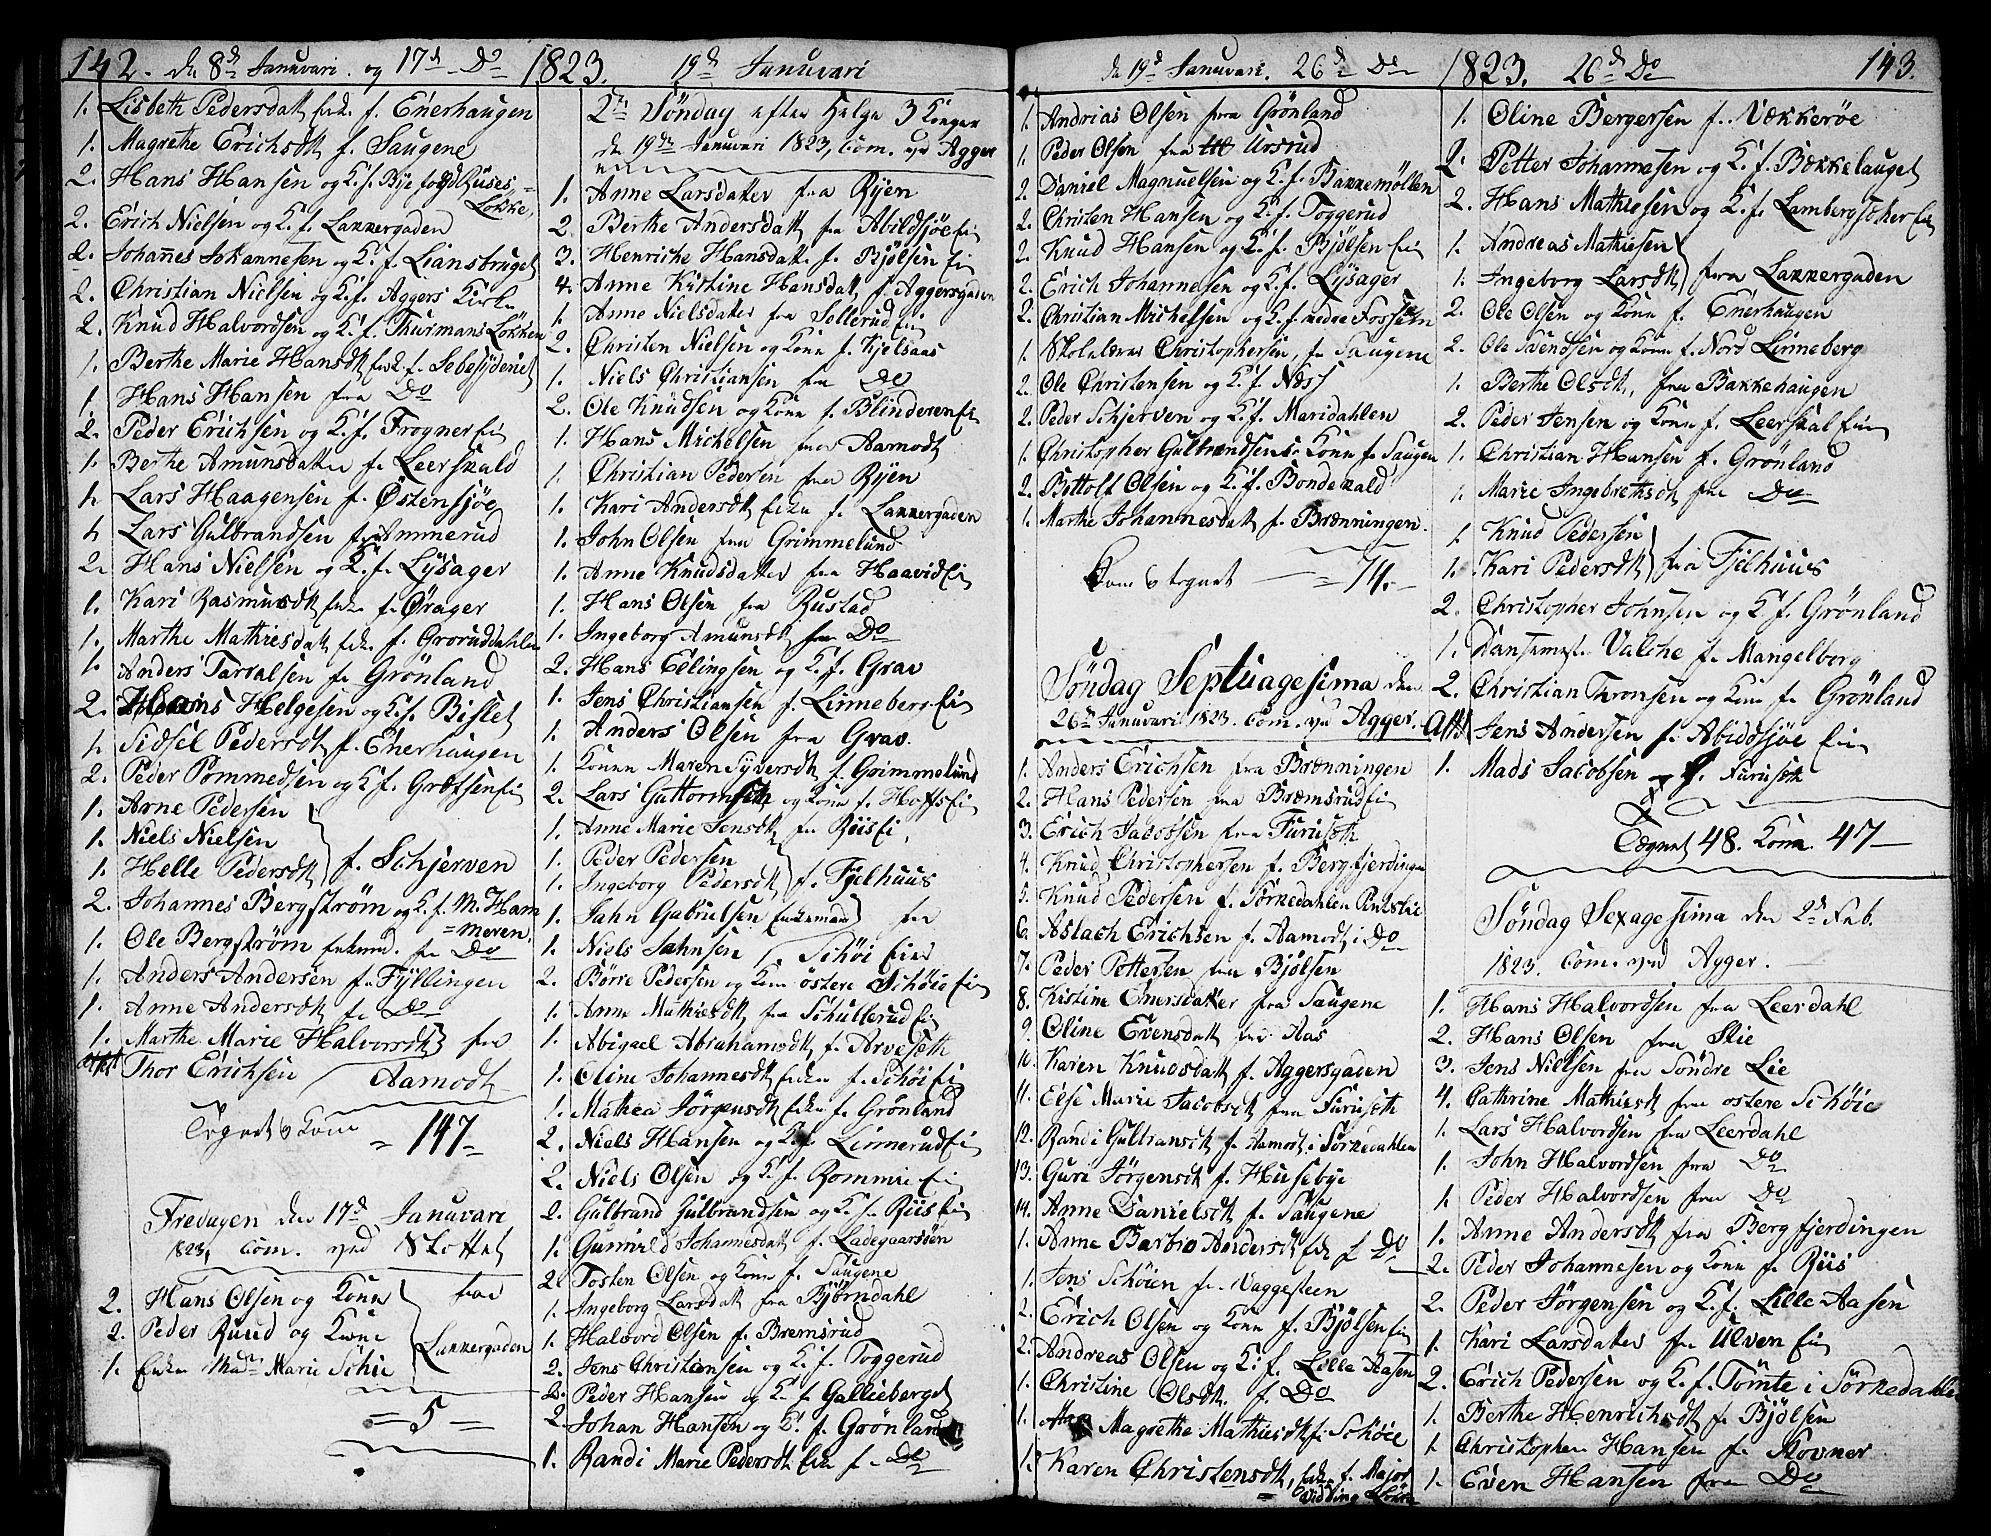 142. den 8de Januvari og 17d Do 1823. 19d Januvari
1. Lisbeth Pedersdatt Enke f. Enerhaugen
1. Magrethe Erichsdt f. Saugene
2. Hans Hansen og K. f. Bye Ruses
Løkke
2. Erich Nielsen og K. f. Lakkergaden
2. Johannes Johannesen og K. f. Liansbruget
2. Christian Nielsen og K. f. Aggers Kirke
2. Knud Halvordsen og K. f. Thurmans Løkken
1. Berthe Marie Hansdt Enk. f. Sebesÿderiet
1. Hans Hansen fra Do
2. Peder Erichsen og K. f. Frogner Ei
1. Berthe Amunsdatter fr. Leerskald
1. Lars Haagensen f. Østensjøe
1. Lars Gulbrandsen fra Ammerud
2. Hans Nielsen og K. f. Lÿsager
1. Kari Rasmusdt Enke f. Ørager
1. Marthe Mathiesdatt Enk. f. Groruddahlen
1. Anders Tarvalsen f. Grönland
2. Hans Helgesen og K. f. Bislet
1. Sidsel Pedersdt f. Enerhaugen
2. Peder Pommedsen og K f. Grefsen Ei
1. Arne Pedersen
1. Niels Nielsen
1. Helle Pedersdt f. Schjerven
2. Johannes Bergstrøm og K. f. M. Ham
=meren.
1. Ole Bergstrøm Enkemd. fr. Do
1. Anders Andersen f. Fÿllingen
1. Anne Andersdt fr Do
1. Marthe Marie Halvorsdt fra
Thor Erichsen Aamodt
Tegnet & Kom = 147 =
Fredagen den 17d Januvari
1823, Com. ved Slottet
2. Hans Olsen og Konn fra
2. Peder Ruud og Kone
1. Enken Mad. Marie Schie Lakkergaden
= 5 =
2den Söndag efter Helge 3 Konger
den 19de Januvari 1823, Com. ved Agger
1. Anne Larsdatter fra Ryen
2. Berthe Andersdatt fra Abildsjøe Ei
3. Henriche Hansdatt f. Bjølsen Ei
4. Anne Kistine Hansdatt f. Aggersgaden
1. Anne Nielsdatter fra Sollerud Ei
2. Christen Nielsen og Konn f. Kjelsaas
1. Niels Christiansen fra Do
2. Ole Knudsen og Konn f. Blinderen Ei
1. Hans Michelsen fra Aamodt
1. Christian Pedersen fra Ryen
1. Kari Andersdt Enke f. Lakkergaden
1. John Olsen fra Grimmelund
1. Anne Knudsdatter fra Haavid Ei
1. Hans Olsen fra Rustad
1. Ingeborg Amunsdt fra Do
2. Hans Ellingsen og K. f. Grav
1. Jens Christiansen f. Linneberg Ei
1. Anders Olsen fra Grav.
1. Konen Maren Syversdt f. Grimmelund
2. Lars Guttormsen og Konn f. Hoffs Ei
1. Anne Marie Jensdt fr. Riis Ei
1. Peder Pedersen
1. Ingeborg Pedersdt f. Fjelhuus
1. Jahn Gabrielsen Enkemand fra
1. Niels Jahnsen Schöi Eier
2. Börre Pedersen og Konn östere Schöie Ei
1. Anne Mathisdt fra Schullerud Ei
1. Abigael Abrahamsdt f. Arveseth
1. Oline Johannesdt Enken f. Schöi Ei
1. Mathea Jörgensdt Enke f. Grönland
2. Niels Hansen og K. f. Linnerud Ei
2. Niels Olsen og K. f. Rommen Ei
2. Gulbrand Gulbrandsen og K. f. Riis Ei
1. Gunnild Johannesdatt f. Ladegaardsøen
2. Tosten Olsen og Konn f. Saugene
1. Ingeborg Larsdatt fra Bjørndahl
1. Halvord Olsen f. Bremsrud
2. Jens Christiansen og K. f. Toggerud
2. Peder Hansen og K. f. Gallieberget
2. Johan Hansøn og K. f. Grönland
1. Randi Marie Pedersdt Enke f. Do
de 19d Januvari. 26de Do 1823. 26de Do 143.
1. Andrias Olsen fra Grönland
1. Peder Olsen fra Ursrud
2. Daniel Magnuelsen og K. f. Bakkemøllen
2. Christen Hansen og K. f. Toggerud
2. Knud Hansen og K. f. Bjölsen Ei
2. Erich Johannesen og K. f. Lÿsager
2. Christian Michelsen og K. f. nedre Fossen
1. Skolelærer Christophersen, fr Saugene
2. Ole Christensen og K. f. Næss
2. Peder Schjerven og K. f. Maridahlen
1. Christopher Gulbrandsens Konn fr Saugen
2. Bottolf Olsen og K. f. Bondekald
1. Marthe Johannesdatt f. Brænningen
Kom & tegnet = 74.
Söndag Septuagesima den
26de Januvari 1823. Com. ved Agger.
1. Anders Erichsen fra Brænningen
2. Hans Pedersen fra Bræmsrud Ei
3. Erich Jacobsen fra Furuseth
4. Knud Christophersen f. Bergfjerdingen
5. Knud Pedersen f. Sörkedahlen
6. Aslach Erichsen f. Aamodt i Do
7. Peder Pettersen fra Bjölsen
8. Kistine Enersdatter fra Saugene
9. Oline Evensdatt fra Aas
10. Karen Knudsdatt f. Aggersgaden
11. Else Marie Jacobsdt fra Furuseth
12. Randi Gulbransdt f. Aamodt i Sörkedahlen
13. Guri Jörgensdt f. Husebye
14. Anne Danielsdt f. Saugene
1. Anne Barbro Andersdt Enk f. Do
1. Jens Schöien fr. Vaggesteen
2. Erich Olsen og Konn f. Bjölsen Ei
2. Andreas Olsen og K. f. Lille Aasen
1. Christine Olsdt. f. Do
1. Magrethe Mathiesdt f. Schöie
1. Karen Christensdt, Enk. f. Major
Løkke
1. Oline Bergersen f. Vækkerøe
2. Petter Johannesen og K. f. Bækkelauget
2. Hans Mathiesen og K. f. Lambergsæter Ei
1. Andreas Mathiesen
1. Ingeborg Larsdt fra Lakkergaden
2. Ole Olsen og Konn f. Enerhaugen
2. Ole Svendsen og Konn f. Nord Linneberg
1. Berthe Olsdt., fra Bakkehaugen
2. Peder Jensen og Konn f. Leerskal Ei
1. Christian Hansen f. Grönland
1. Marie Ingebrethsdt fra Do
1. Knud Pedersen
1. Kari Pedersdt fra Fjelhuus
2. Christopher Johnsen og K f. Grönland
1. Dansemest. Valche f. Mangelborg
2. Christian Thronsen og Konn fr Grönland
Att Jens Andersen fr. Abildsjøe Ei
1. Mads Jacobsen f. Furuseth
Tegnet 48. Kom 47
Söndag Sexagesima den 2d Feb.
1823. Com. ved Agger.
1. Hans Halvordsen fra Leerdahl
2. Hans Olsen fra Slie
3. Jens Nielsen fra Söndre Lie
4. Cathrine Mathisdt fra östere Schöie
1. Lars Halvordsen fra Leerdahl
1. John Halvordsen fra Do
1. Peder Halvordsen fra Do
1. Anne Andersdt fra Bergfjerdingen
2. Peder Johannesen og Konn f. Riis
2. Peder Jörgensen og K. f. Lille Aasen
1. Kari Larsdatter fra Ulven Ei
2. Erich Pedersen og K. f. Tömte i Sörkedahlen
1. Berthe Henrichsdt f. Bjölsen
1. Christopher Hansen f. Hovner
1. Even Hansen fra Do